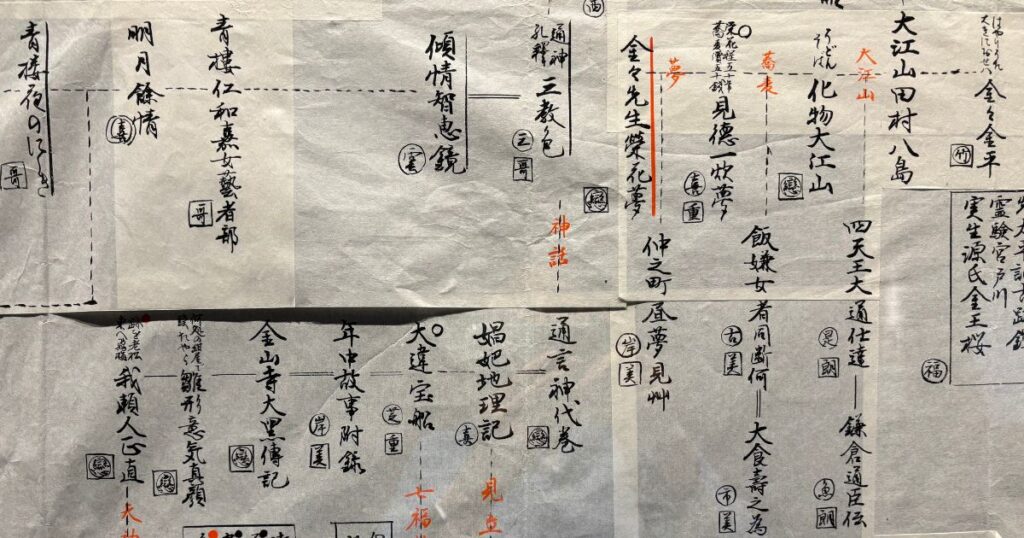 金々金平
竹
大江山田村八島
大江山
化物大江山
戀
蕎麦
見徳一炊夢
喜
重
夢
金々先生榮花夢
戀
通神
孔釋
三教色
三
哥
傾情智恵鏡
雲
青樓仁和嘉女藝者部
哥
明月餘情
喜
青楼夜のにしき
哥
霊験宮戸川
実生源氏金王桜
福
四天王大通仕達
鎌倉通臣伝
飯嫌女者同断何
美
大食壽之為
市
美
仲之町昼夢見艸
岸
美
神話
通言神代巻
戀
娼妃地理記
喜
見立
大違宝船
芝
重
七福
年中故事附録
岸
美
金山寺大黒傳記
戀
雛形意気真顔
戀
我頼人正直
戀